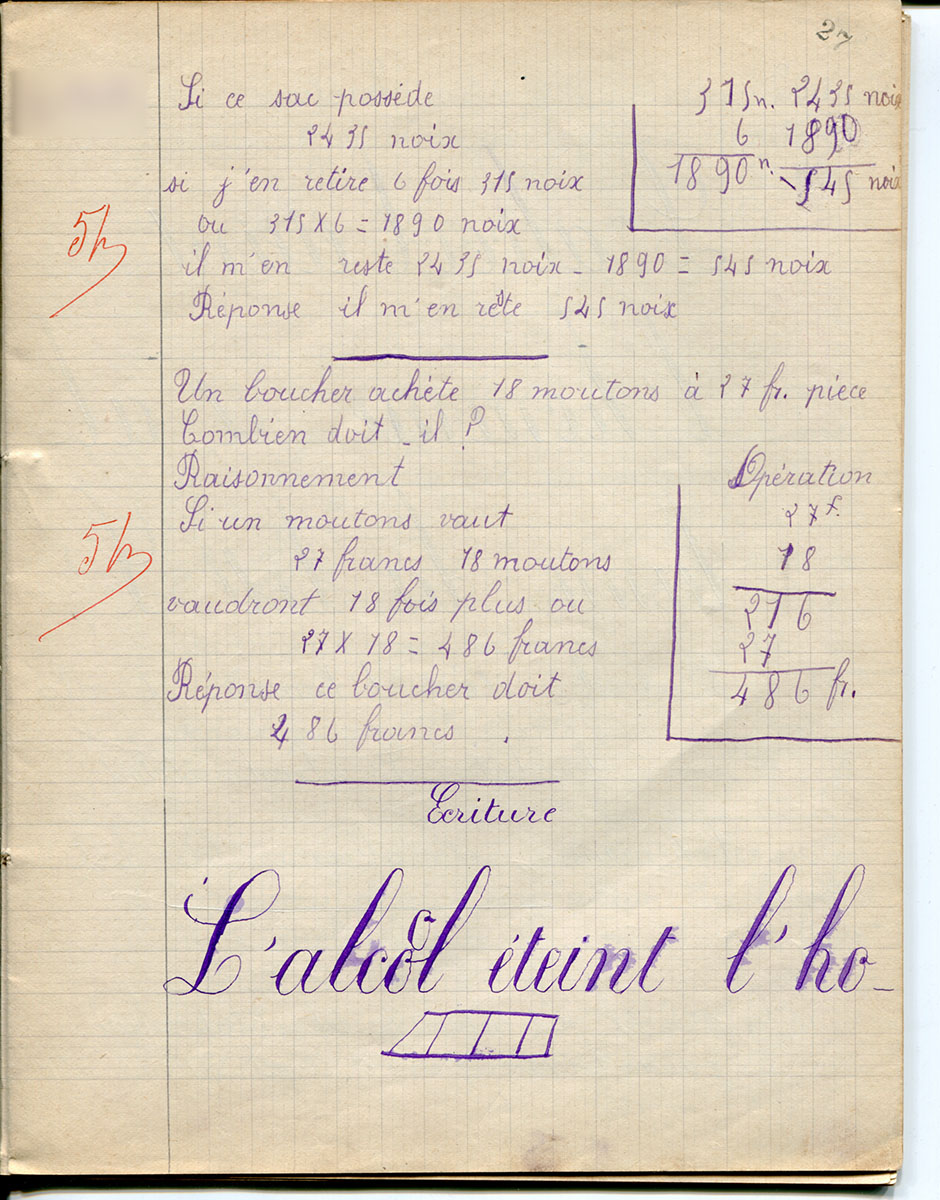 27
Si ce sac possède
2435 noix
si j'en retire 6 fois 315 noix
ou 315 X 6 = 1890 noix
il m'en reste 2435 noix - 1890 = 545 noix
Réponse il m'en reste 545 noix
315n. 2435 noix
6 1890
1890 n. 545 noix
Un boucher achéte 18 moutons à 27 fr. pièce
Combien doit-il ?
Raisonnement
Si un moutons vaut
27 francs 18 moutons
vaudront 18 fois plus ou
27 X 18 = 486 francs
Réponse ce boucher doit
486 francs .
Opération
27 f.
18
216
27
486 fr.
Ecriture
L'alcool éteint l'ho-